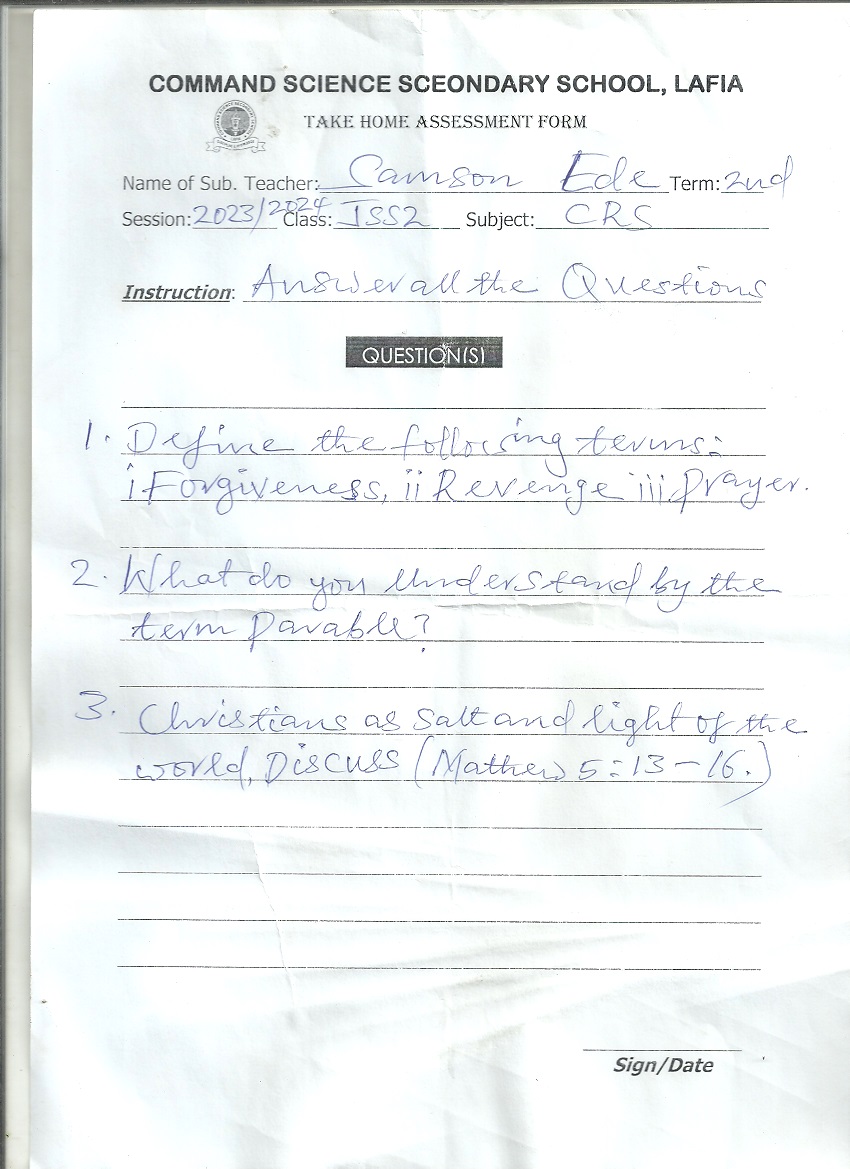 COMMAND SCIENCE SCEONDARY SCHOOL, LAFIA
TAKE HOME ASSESSMENT FORM
Name of Sub. Teacher: Samson Ede Term: 2nd
Session: 2023/2024 Class: JSS2 Subject: CRS
Instruction: Answer all the Questions
QUESTION(S)
1. Define the following terms:
i Forgiveness, ii Revenge iii Prayer.
2. What do you understand by the
term parable?
3. Christians as salt and light of the
world, Discuss (Mathew 5:13-16.)
Sign/Date